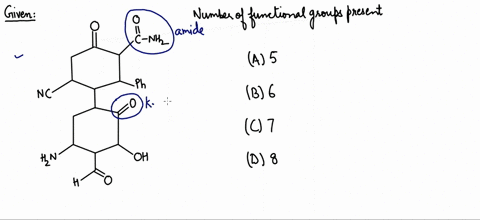 Given:
Number of functional groups present
O
O
C-NH₂
amide
(A) 5
Ph
NC
O
k.
(B) 6
(C) 7
H₂N
OH
(D) 8
H
O